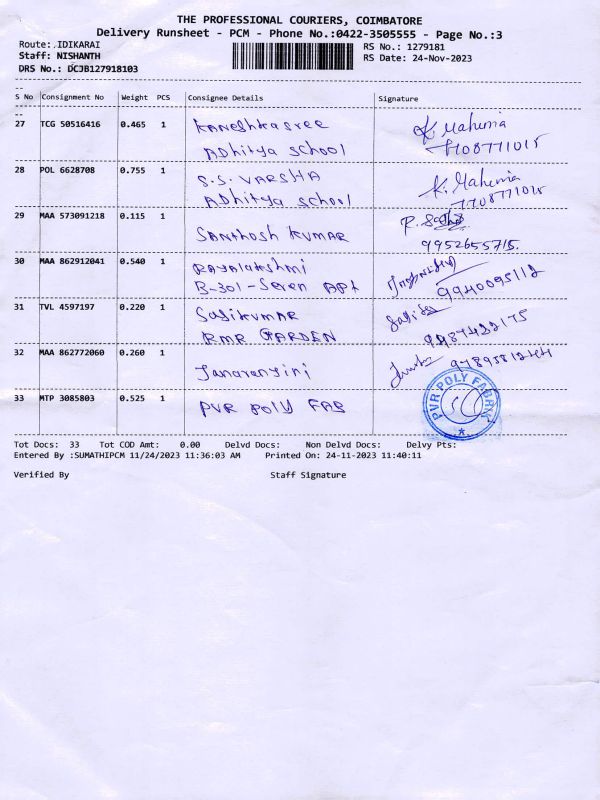 THE PROFESSIONAL COURIERS, COIMBATORE
Delivery Runsheet - PCM - Phone No.:0422-3505555 - Page No.:3
Route: IDIKARAI RS No.: 1279181
Staff: NISHANTH RS Date: 24-Nov-2023
DRS No.: DCJB127918103
S No Consignment No Weight PCS Consignee Details Signature
27 TCG 50516416 0.465 1 Kaneshkasree K Mahema
Adhitya school 7708771015
28 POL 6628708 0.755 1 S.S. VARSHA K. Mahema
Adhitya school 7708771015
29 MAA 573091218 0.115 1 Santhosh Kumar
9952655715.
30 MAA 862912041 0.540 1 Rajalakshmi
B-301-Seven Apt 9940095112
31 TVL 4597197 0.220 1 Sasikumar Sasi
RMR GARDEN 9487422175
32 MAA 862772060 0.260 1 Janaranjini
33 MTP 3085803 0.525 1 PVR Poly FAB PVR POLY FABRIK
Tot Docs: 33 Tot COD Amt: 0.00 Delvd Docs: Non Delvd Docs: Delvy Pts:
Entered By :SUMATHIPCM 11/24/2023 11:36:03 AM Printed On: 24-11-2023 11:40:11
Verified By Staff Signature